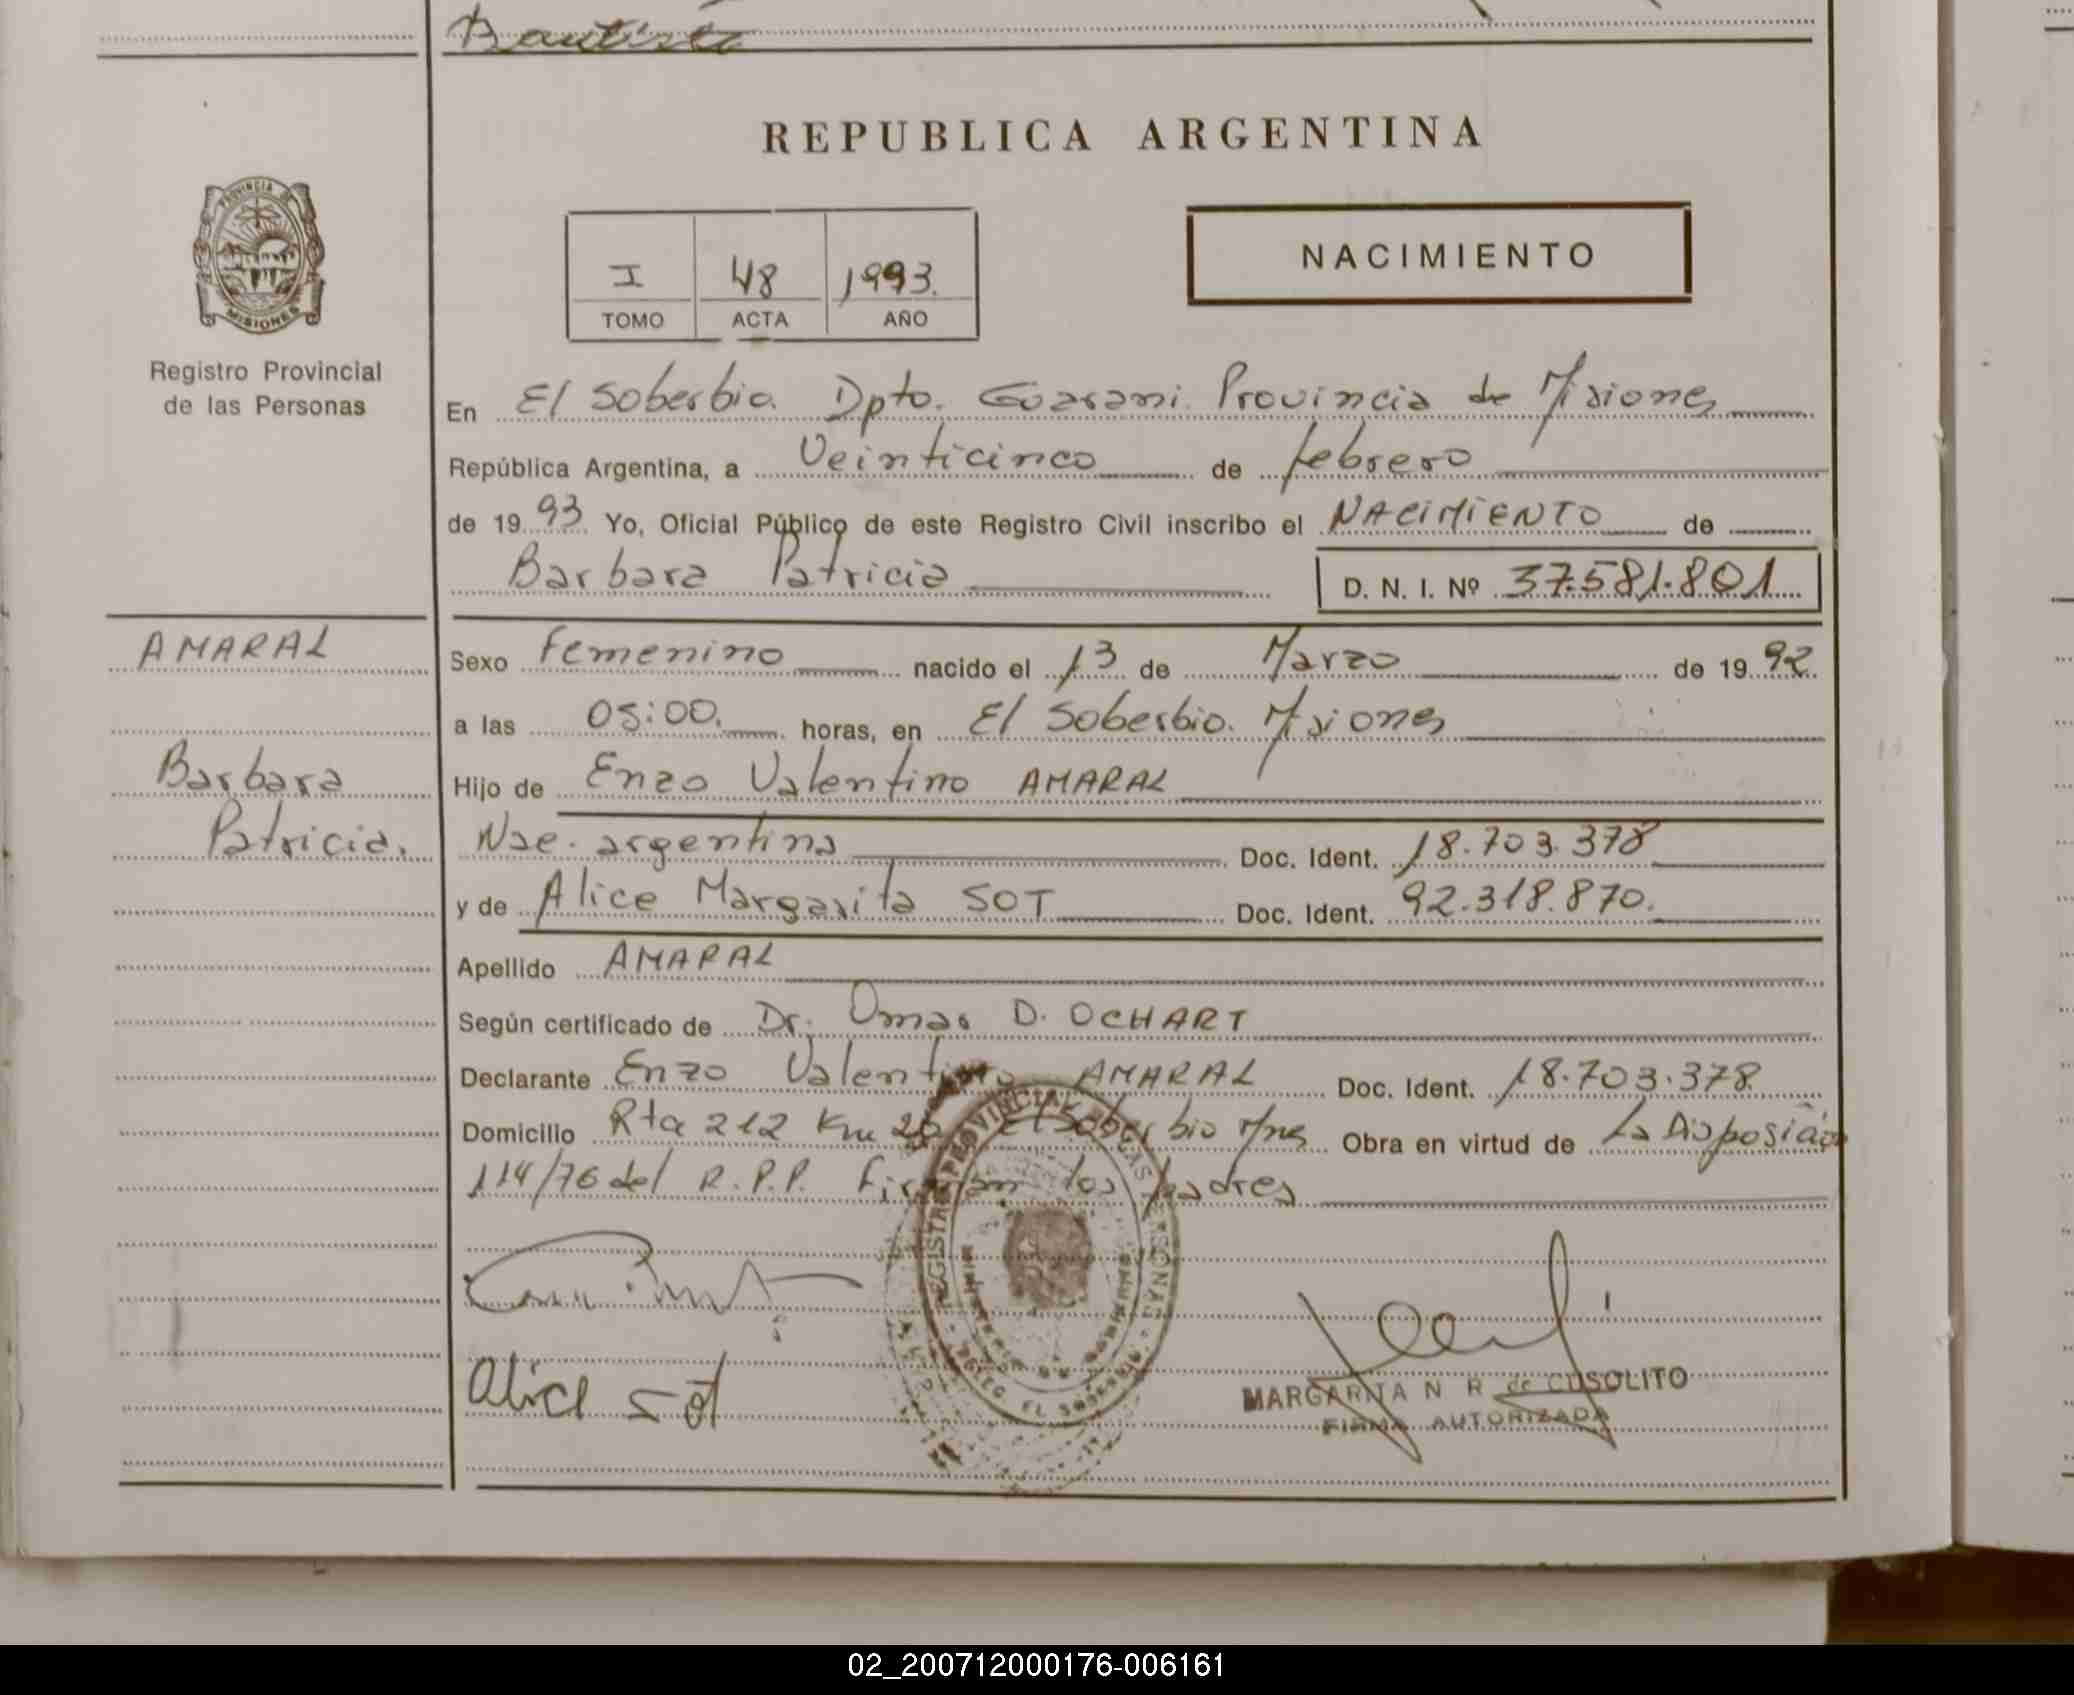 Bautista
REPUBLICA ARGENTINA
PROVINCIA DE
MISIONES
Registro Provincial
de las Personas
I 48 1993.
TOMO ACTA AÑO
NACIMIENTO
En El Soberbio. Dpto. Guarani. Provincia de Misiones
República Argentina, a Veinticinco de febrero
de 1993 Yo, Oficial Público de este Registro Civil inscribo el NACIMIENTO de
Barbara Patricia D. N. I. Nº 37.581.801
AMARAL
Barbara
Patricia.
Sexo Femenino nacido el 13 de Marzo de 1992
a las 05:00. horas, en El Soberbio. Misiones
Hijo de Enzo Valentino AMARAL
Nac. argentina Doc. Ident. 18.703.378
y de Alice Margarita SOT Doc. Ident. 92.318.870.
Apellido AMARAL
Según certificado de Dr. Omar D. OCHART
Declarante Enzo Valentino AMARAL Doc. Ident. 18.703.378
Domicilio Rta 212 Km 20 El Soberbio Mnes Obra en virtud de La Disposición
114/76 del R.P.P. Firman los padres
Alice Sot
MARGARITA N R de CUSOLITO
FIRMA AUTORIZADA
02_200712000176-006161